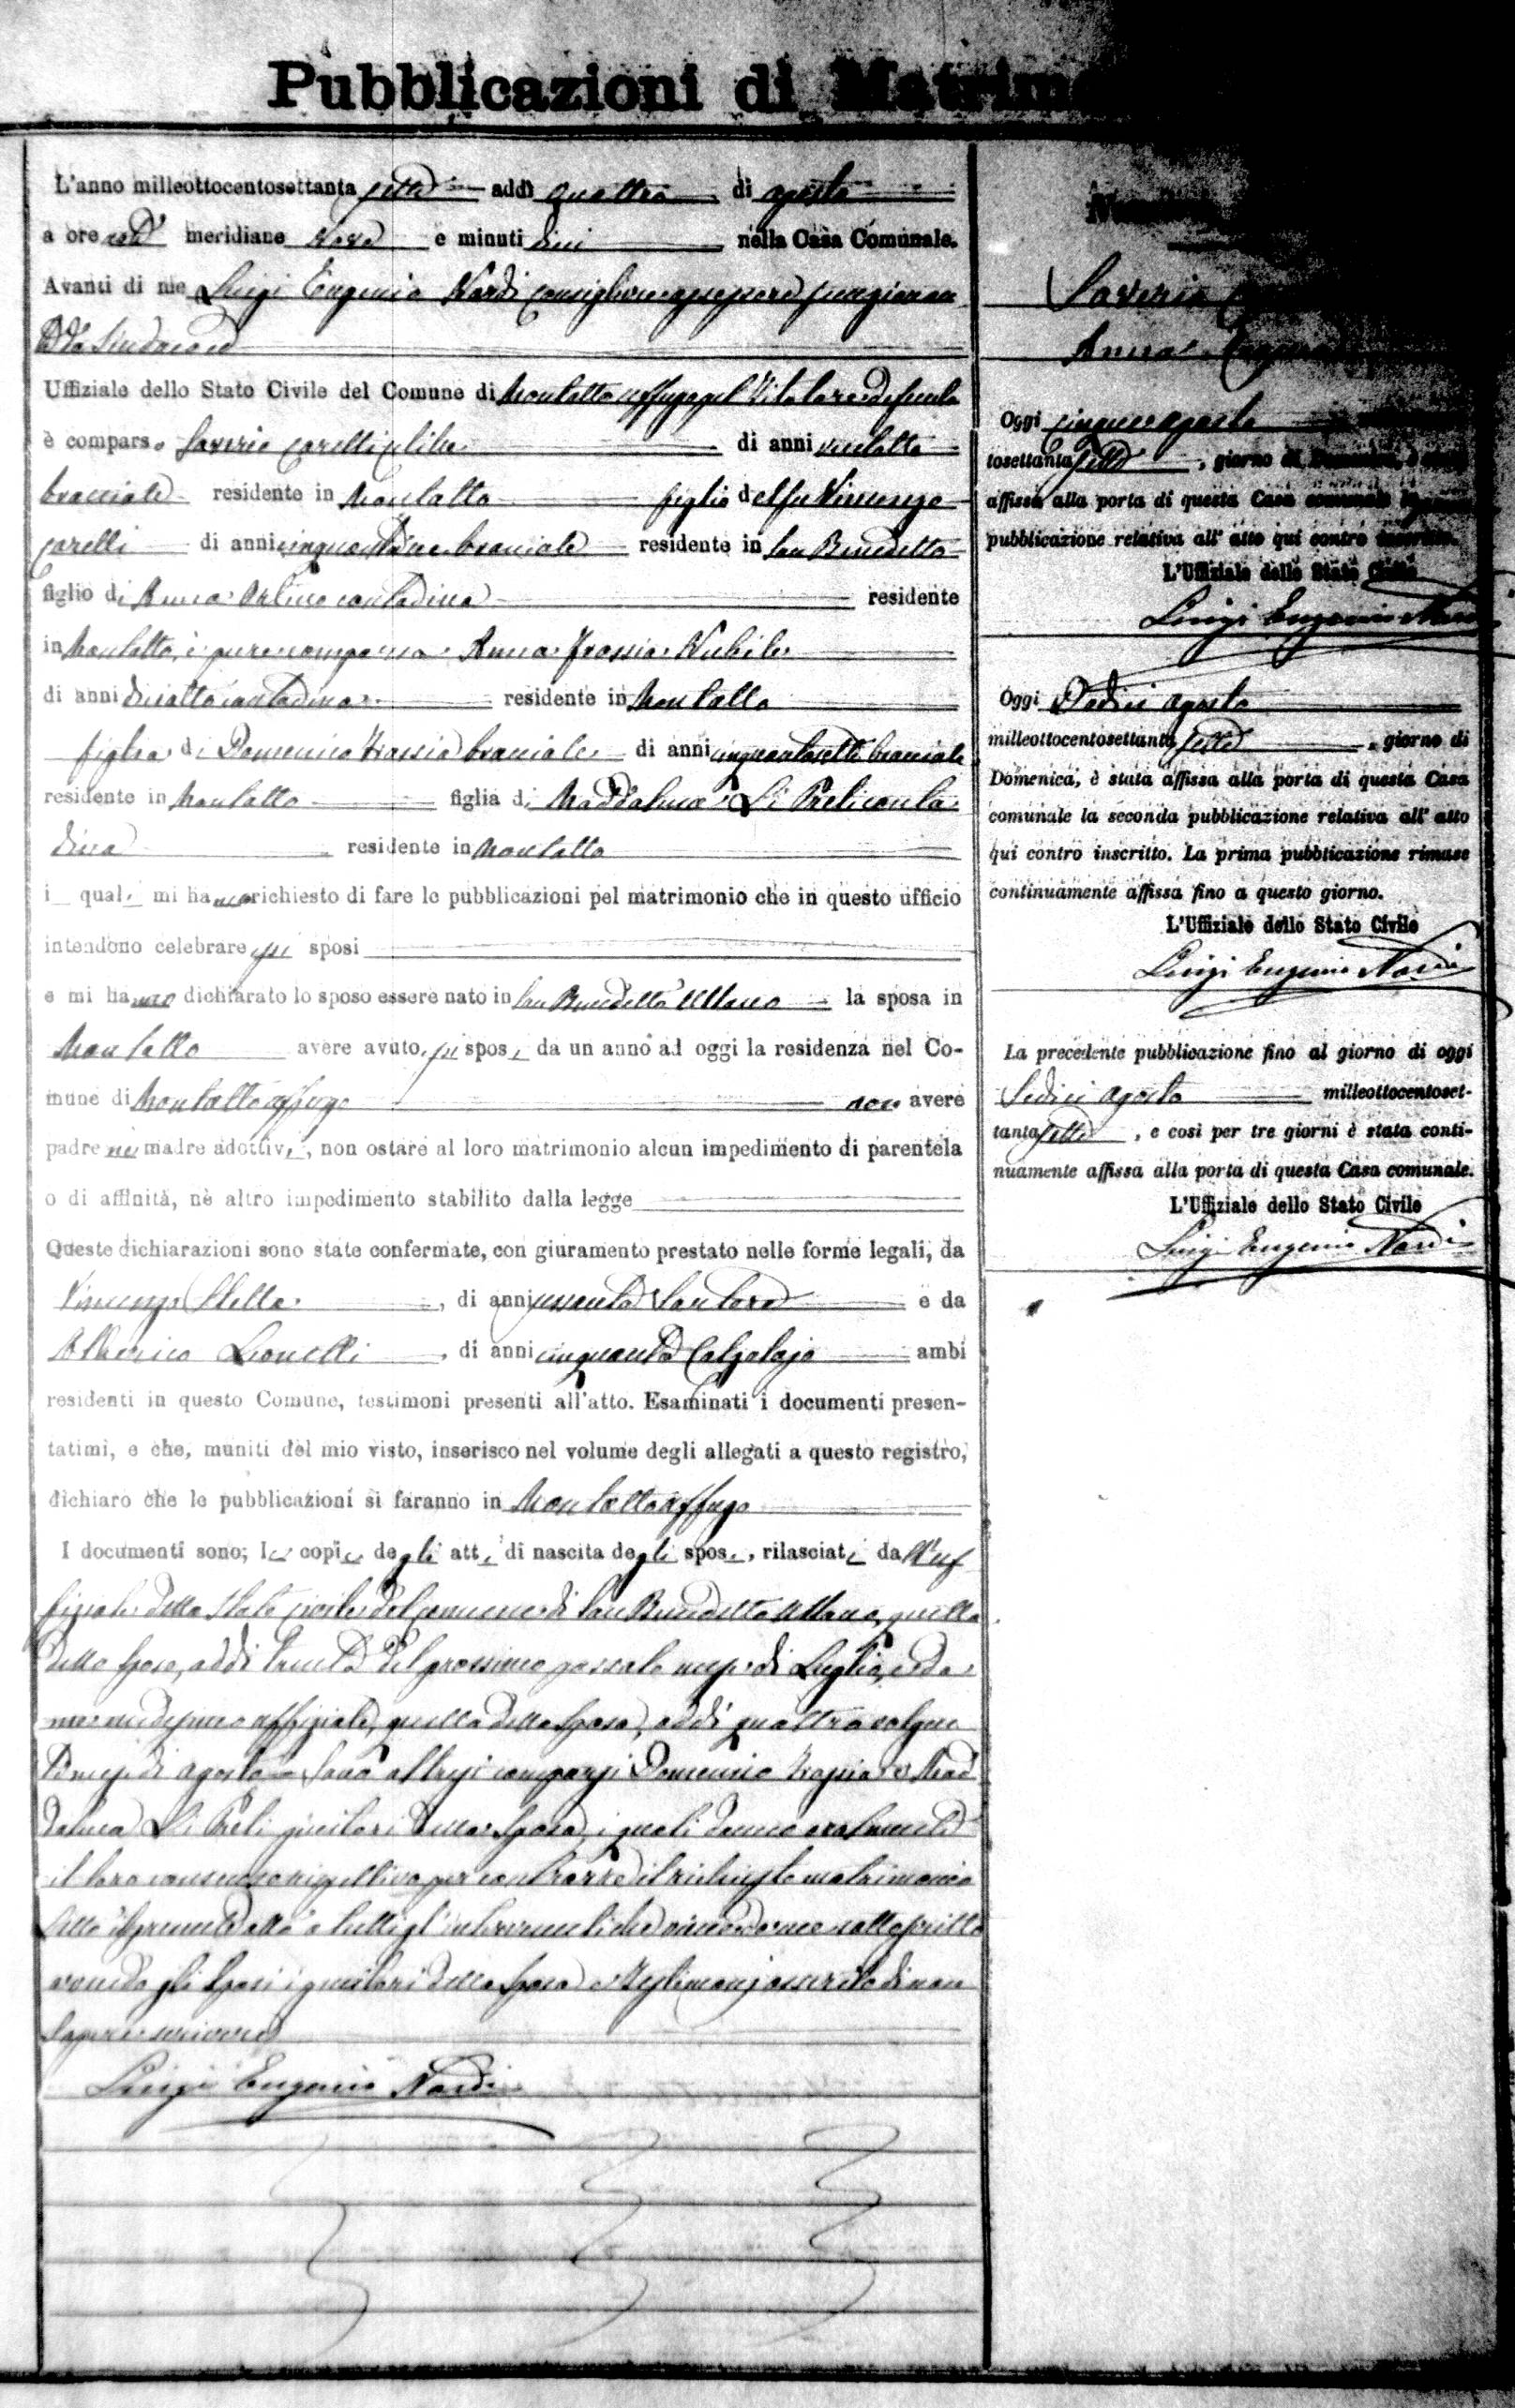 Pubblicazioni di Matrimo
L'anno milleottocentosettanta sette addì quattro di agosto
a ore meridiane nove e minuti dieci nella Casa Comunale.
Avanti di me Luigi Eugenio Nardi consigliere assessore funzionan
da Sindaco
Uffiziale dello Stato Civile del Comune di Montalto uffugo
è comparso Saverio Carelli celibe di anni ventotto
bracciale residente in Montalto figlio del fu Vincenzo
Carelli di anni bracciale residente in San Benedetto
figlio di Anna contadina residente
in Montalto, è pure comparsa Anna Trassia Nubile
di anni diciotto contadina residente in Montalto
figlia di Domenico Trassia bracciale di anni cinquantasette bracciale
residente in Montalto figlia di Maddalena Li Preti conta
dina residente in Montalto
i quali mi hanno richiesto di fare le pubblicazioni pel matrimonio che in questo ufficio
intendono celebrare essi sposi
e mi hanno dichiarato lo sposo essere nato in San Benedetto Ullano la sposa in
Montalto avere avuto essi sposi da un anno ad oggi la residenza nel Co-
mune di Montalto uffugo non avere
padre nè madre adottivi, non ostare al loro matrimonio alcun impedimento di parentela
o di affinità, nè altro impedimento stabilito dalla legge
Queste dichiarazioni sono state confermate, con giuramento prestato nelle forme legali, da
Vincenzo Stella, di anni sessanta e da
Alberico Lionelli, di anni cinquanta Calzolajo ambi
residenti in questo Comune, testimoni presenti all'atto. Esaminati i documenti presen-
tatimi, e che, muniti del mio visto, inserisco nel volume degli allegati a questo registro,
dichiaro che le pubblicazioni si faranno in Montalto uffugo
I documenti sono; le copie degli atti di nascita degli sposi, rilasciati dall'uf
fiziale dello Stato civile del Comune di San Benedetto Ullano, quella
dello Sposo, addì trenta del prossimo passato mese di Luglio, e da
me medesimo uffiziale, quella della Sposa, addì quattro volgen
te mese di agosto. Sono altresì comparsi Domenico Trassia e Mad
dalena Li Preti genitori della Sposa, i quali danno oralmente
il loro consenso rispettivo per contrarre il richiesto matrimonio
Letto il presente atto a tutti gl'intervenuti che viene da me sottoscritto
avendo gli Sposi i genitori della Sposa e testimonj asserito di non
sapere scrivere
Luigi Eugenio Nardi
Saverio
Anna
Oggi cinque agosto
tosettanta sette, giorno di Domenica, è
affissa alla porta di questa Casa comunale la
pubblicazione relativa all'atto qui contro inscritto.
L'Uffiziale dello Stato Civile
Luigi Eugenio Nardi
Oggi Dodici agosto
milleottocentosettanta sette, giorno di
Domenica, è stata affissa alla porta di questa Casa
comunale la seconda pubblicazione relativa all'atto
qui contro inscritto. La prima pubblicazione rimase
continuamente affissa fino a questo giorno.
L'Uffiziale dello Stato Civile
Luigi Eugenio Nardi
La precedente pubblicazione fino al giorno di oggi
Sedici agosto milleottocentoset-
tanta sette, e così per tre giorni è stata conti-
nuamente affissa alla porta di questa Casa comunale.
L'Uffiziale dello Stato Civile
Luigi Eugenio Nardi